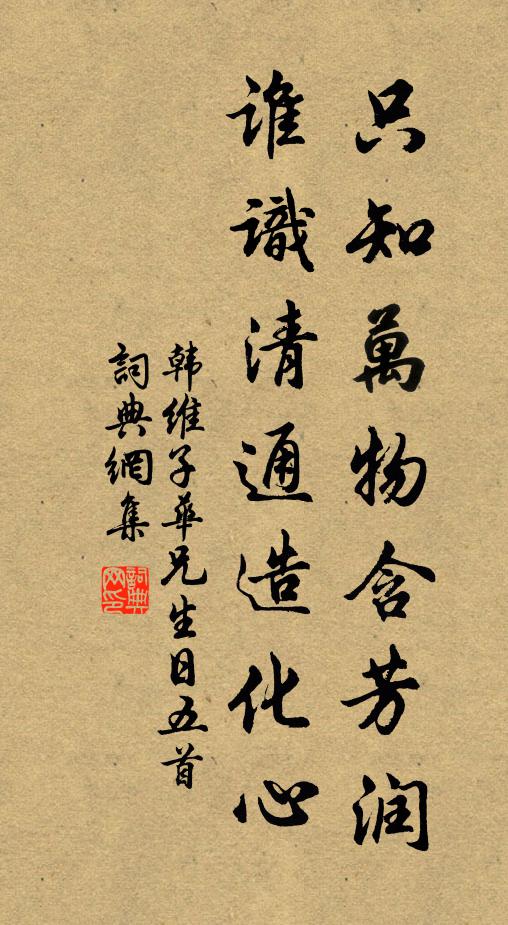 只知萬物含芳润
谁識清通造化心
韩維子華兄生日五首
詞典網集
詞典网印